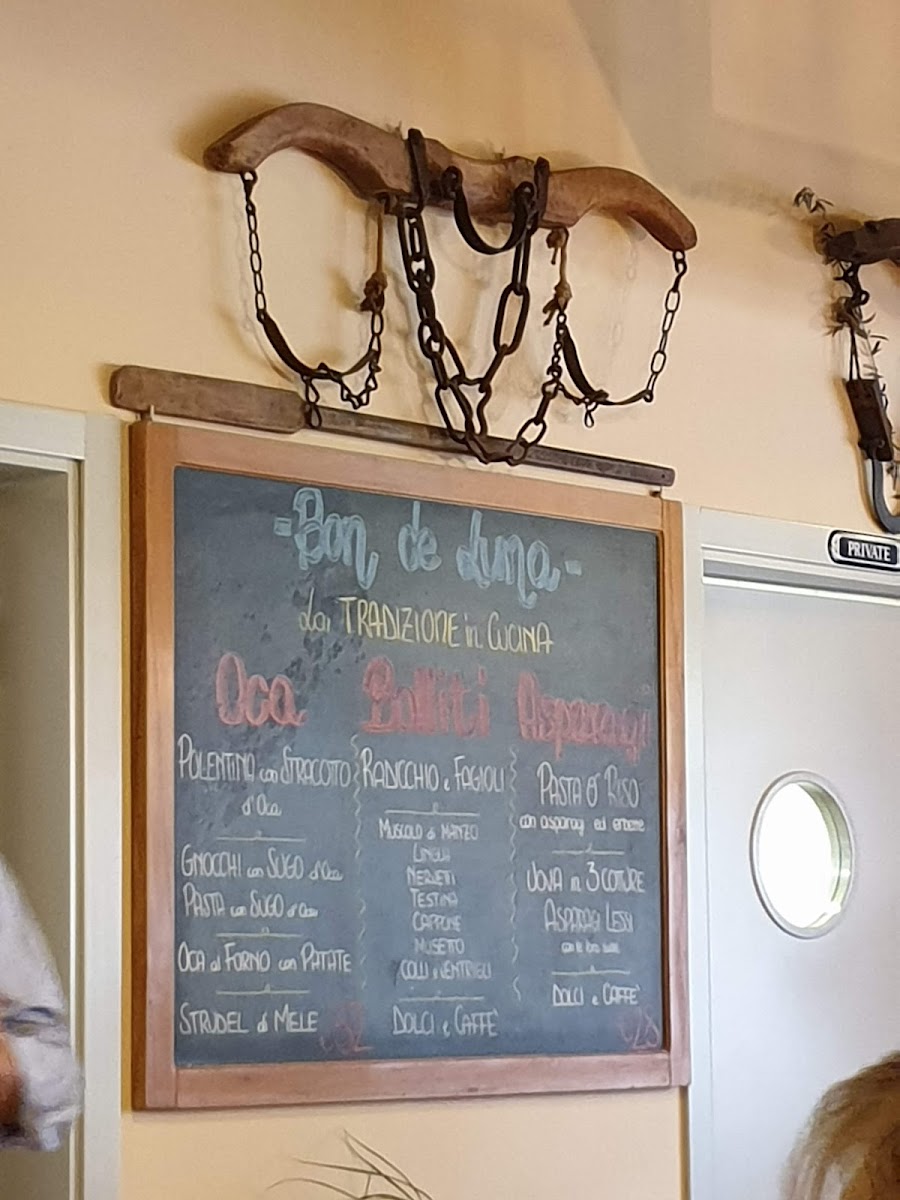 - Bon de Luna -
La TRADIZIONE in CUCINA
Oca
POLENTINA con STRACOTTO
d'Oca
GNOCCHI con SUGO d'Oca
PASTA con SUGO d'Oca
OCA al FORNO con PATATE
STRUDEL di MELE
Bolliti
RADICCHIO e FAGIOLI
MUSCOLO di MANZO
LINGUA
NERVETI
TESTINA
CAPPONE
MUSETTO
COLLI e VENTRIGLI
DOLCI e CAFFE'
Asparagi
PASTA O' RISO
con asparagi ed erbette
UOVA in 3 COTURE
ASPARAGI LESSI
con le loro
DOLCI e CAFFE'
PRIVATE